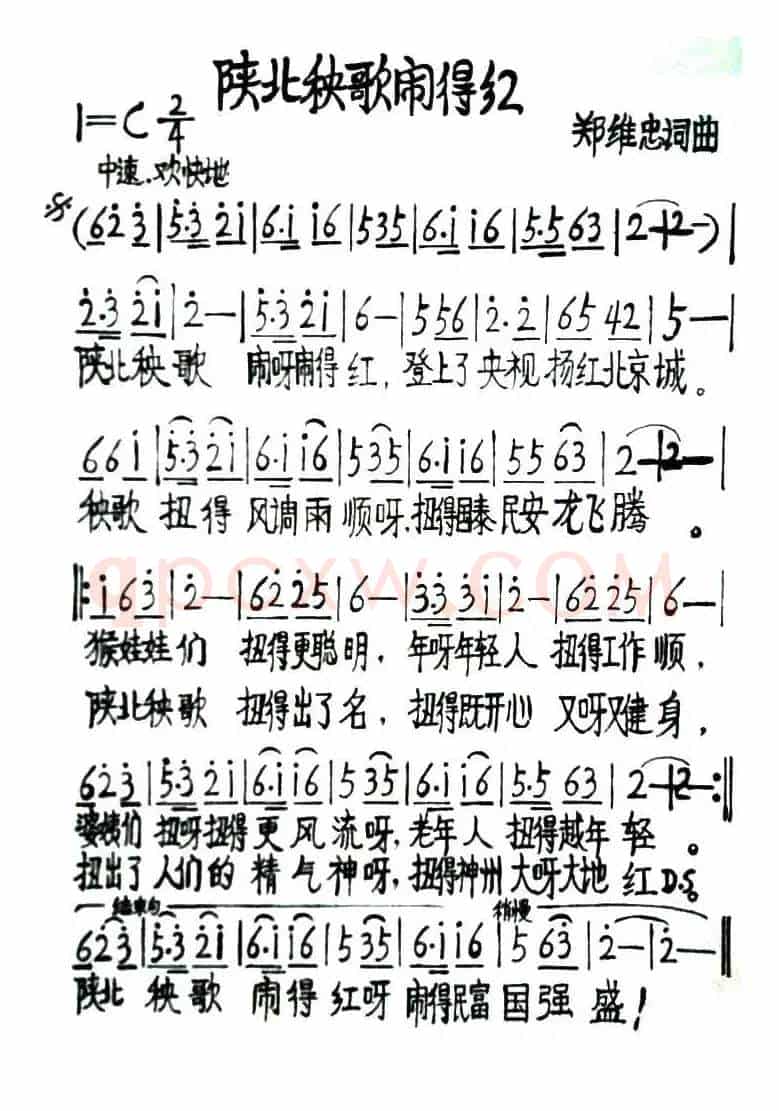 陕北秧歌闹得红
1=C 2/4
郑维忠词曲
中速.欢快地
(62̇3̇|5̇.3̇ 2̇1̇|6.1̇ 1̇6|535|6.1̇ 1̇6|5.5 63|2—|2—)|
2̇.3̇ 2̇1̇|2̇—|5̇.3̇ 2̇1̇|6—|556|2̇.2̇|65 42|5—|
陕北秧歌 闹呀闹得红，登上了央视扬红北京城。
661̇|5̇.3̇ 2̇1̇|6.1̇ 1̇6|535|6.1̇ 1̇6|55 63|2—|2—|
秧歌扭得风调雨顺呀,扭得国泰民安龙飞腾。
‖:1̇63̇|2̇—|62̇ 2̇5|6—|3̇.3̇ 3̇1̇|2̇—|62̇ 2̇5|6—|
猴娃娃们 扭得更聪明，年呀年轻人 扭得工作顺，
陕北秧歌 扭得出了名，扭得既开心 又呀又健身，
62̇3̇|5̇.3̇ 2̇1̇|6.1̇ 1̇6|5 35|6.1̇ 1̇6|5.5 63|2—|2—:‖
婆姨们 扭呀扭得更风流呀，老年人 扭得越年轻。
扭出了人们的精气神呀，扭得神州大呀大地红。D.S.
结束句 稍慢
62̇3̇|5̇.3̇ 2̇1̇|6.1̇ 1̇6|5 35|6.1̇ 1̇6|5 63̇|2̇—|2̇—‖
陕北秧歌闹得红呀 闹得民富国强盛！
qpcxw.com